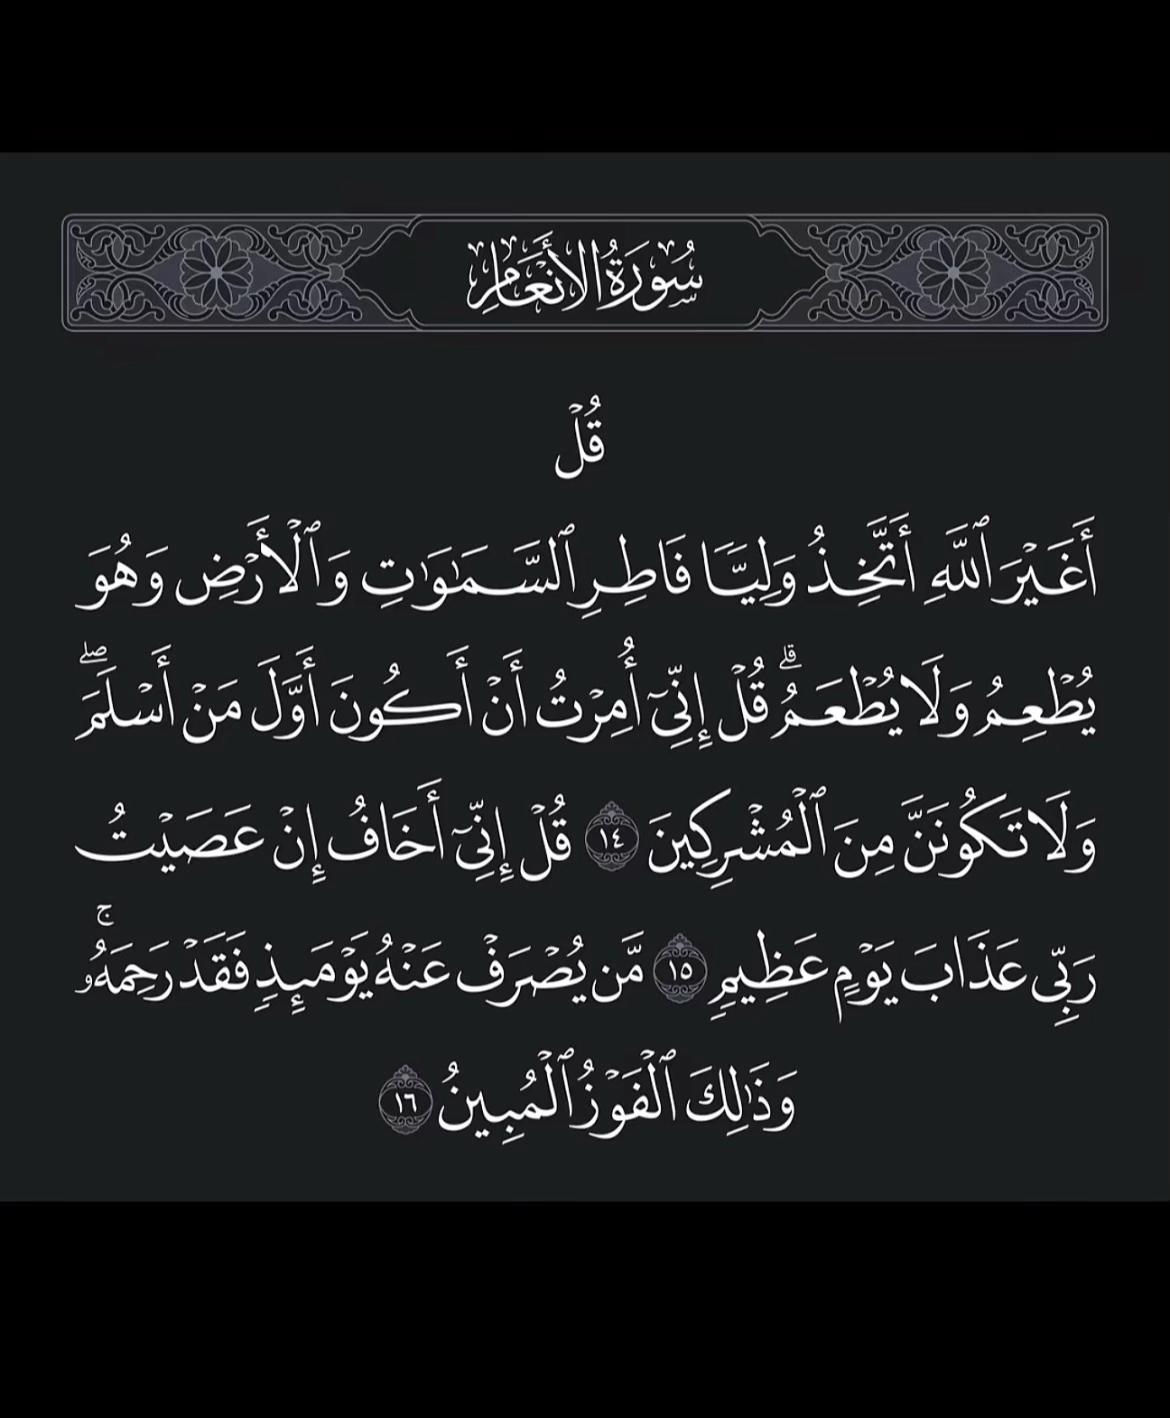 سُورَةُ الأَنْعَامِ
قُلۡ
أَغَيۡرَ ٱللَّهِ أَتَّخِذُ وَلِيّٗا فَاطِرِ ٱلسَّمَٰوَٰتِ وَٱلۡأَرۡضِ وَهُوَ
يُطۡعِمُ وَلَا يُطۡعَمُۗ قُلۡ إِنِّيٓ أُمِرۡتُ أَنۡ أَكُونَ أَوَّلَ مَنۡ أَسۡلَمَۖ
وَلَا تَكُونَنَّ مِنَ ٱلۡمُشۡرِكِينَ ١٤ قُلۡ إِنِّيٓ أَخَافُ إِنۡ عَصَيۡتُ
رَبِّي عَذَابَ يَوۡمٍ عَظِيمٖ ١٥ مَّن يُصۡرَفۡ عَنۡهُ يَوۡمَئِذٖ فَقَدۡ رَحِمَهُۥۚ
وَذَٰلِكَ ٱلۡفَوۡزُ ٱلۡمُبِينُ ١٦